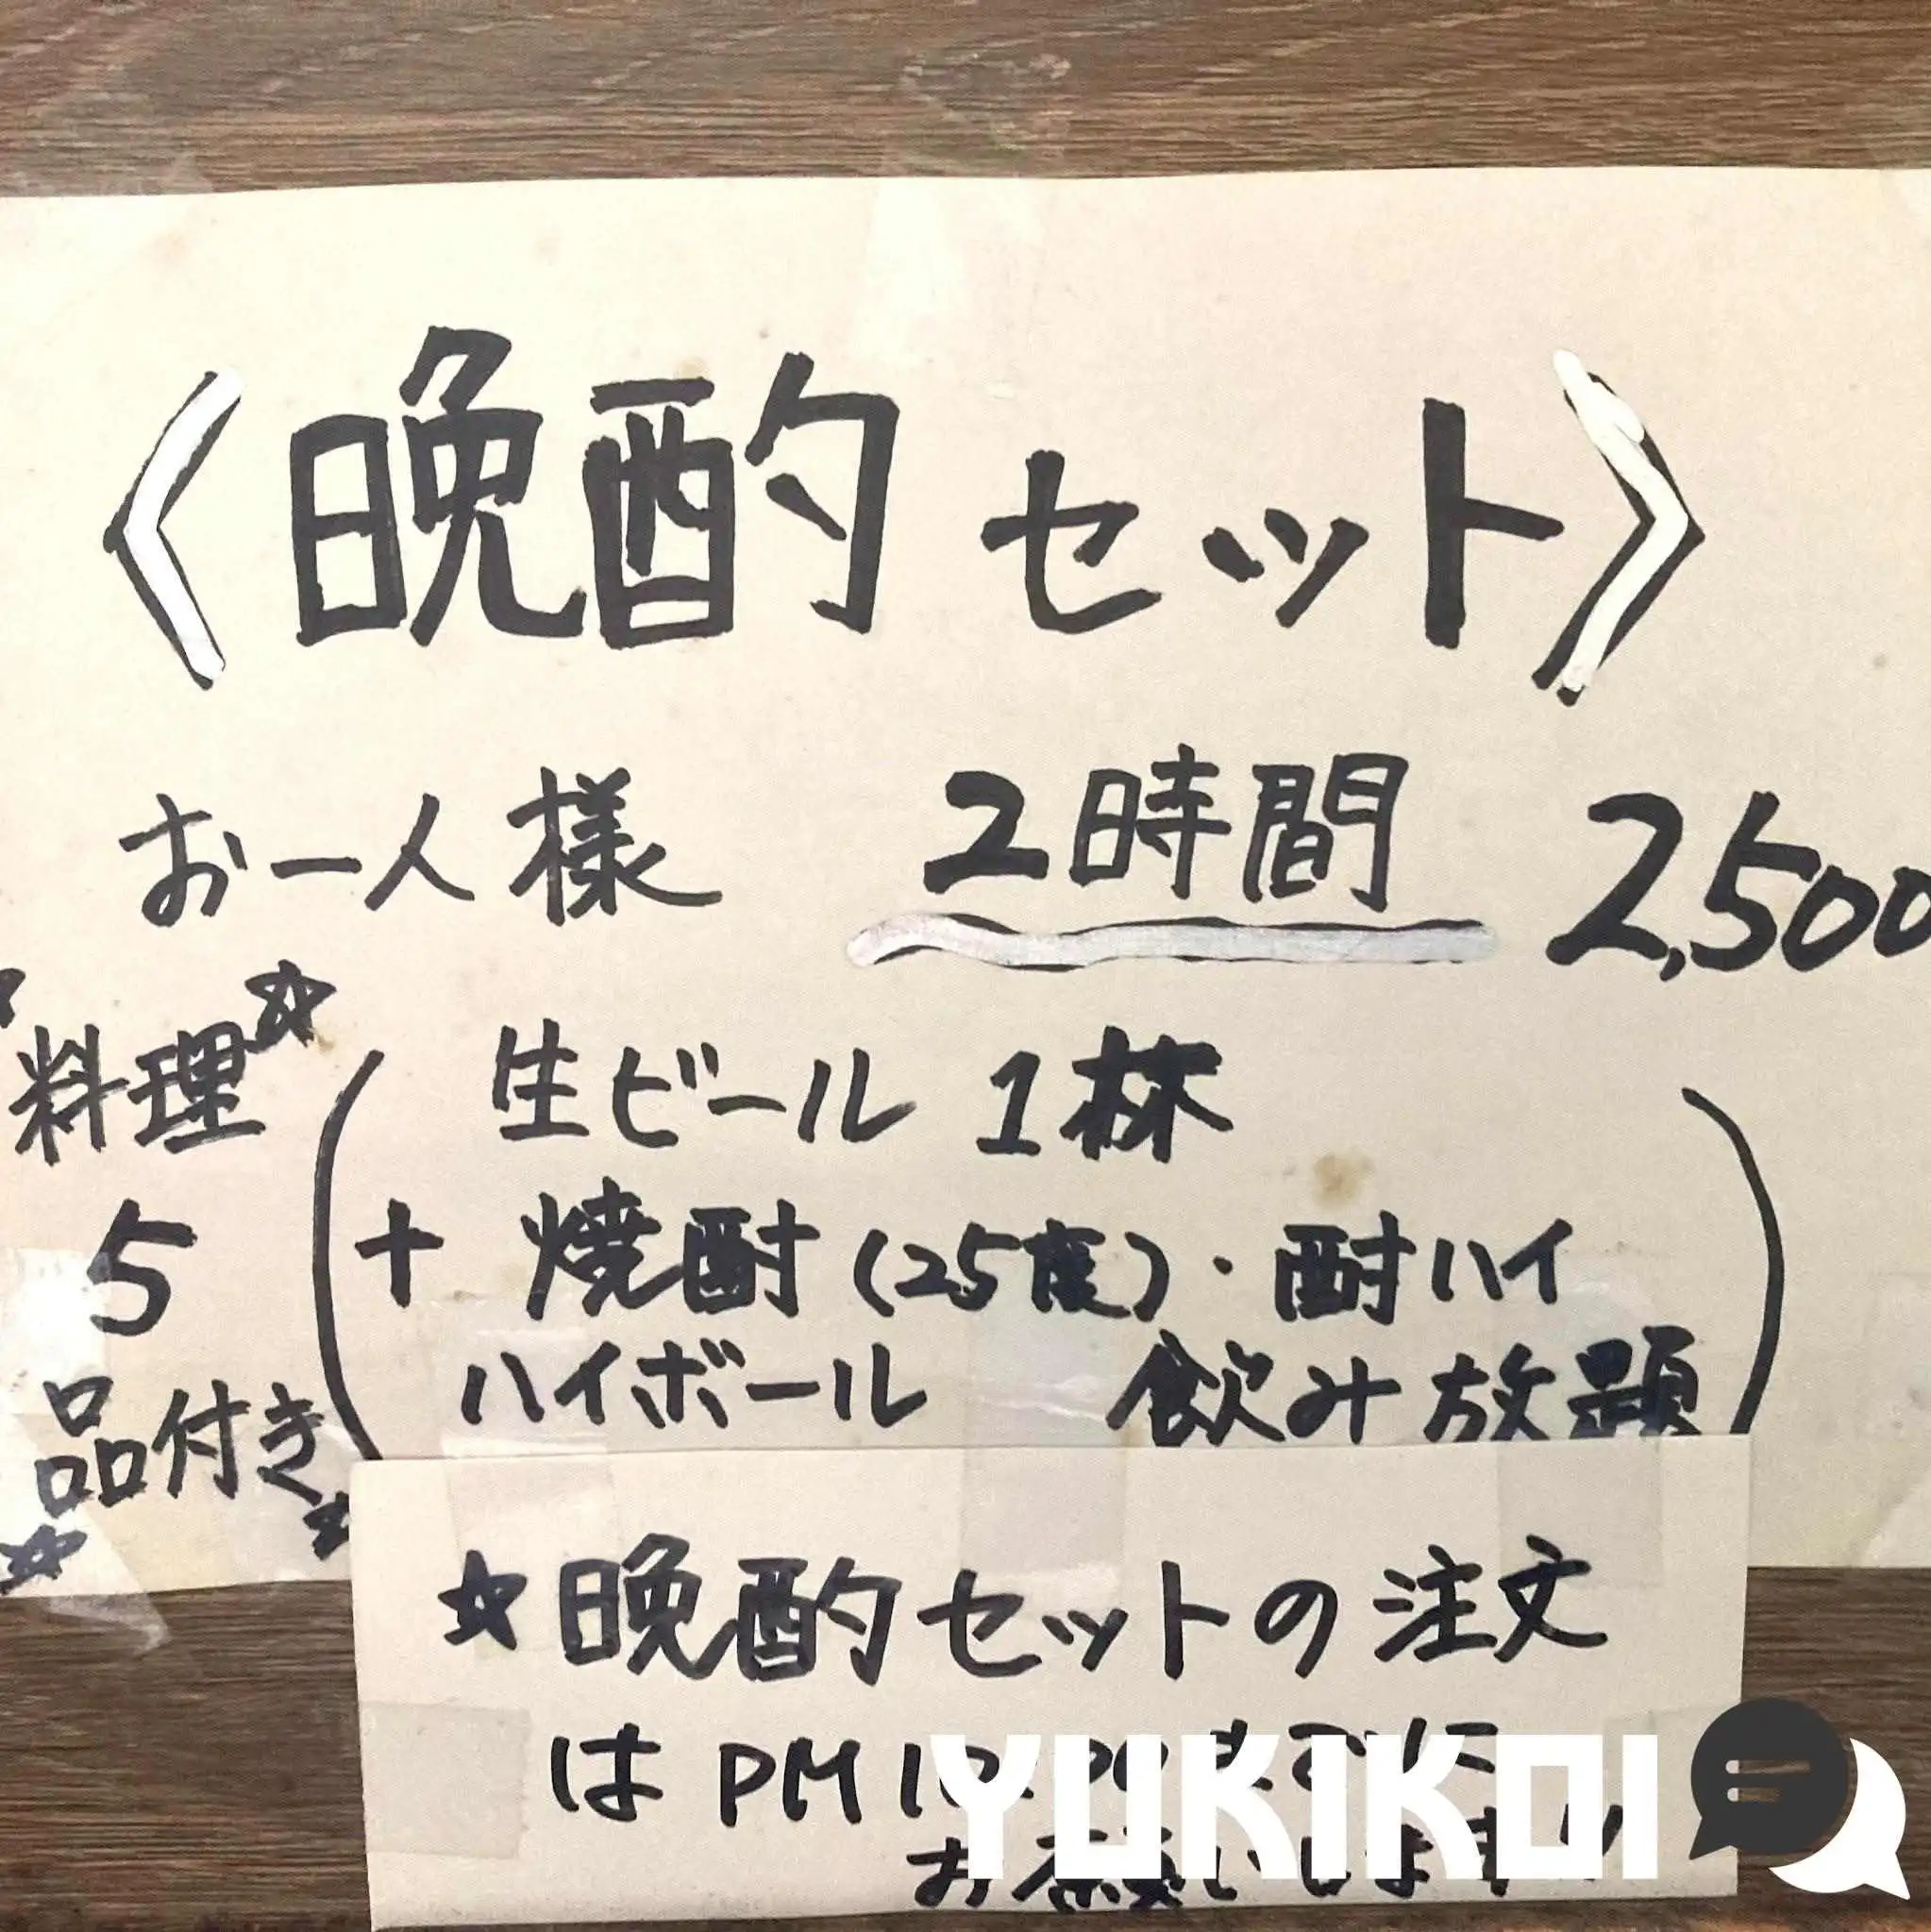 《晩酌セット》
お一人様 2時間 2,500
☆料理☆
5
品付き
☆ ☆
(生ビール 1杯
+焼酎(25度)・酎ハイ
ハイボール 飲み放題)
☆晩酌セットの注文
は PM10:00までに
お願いします!!
YUKIKOI